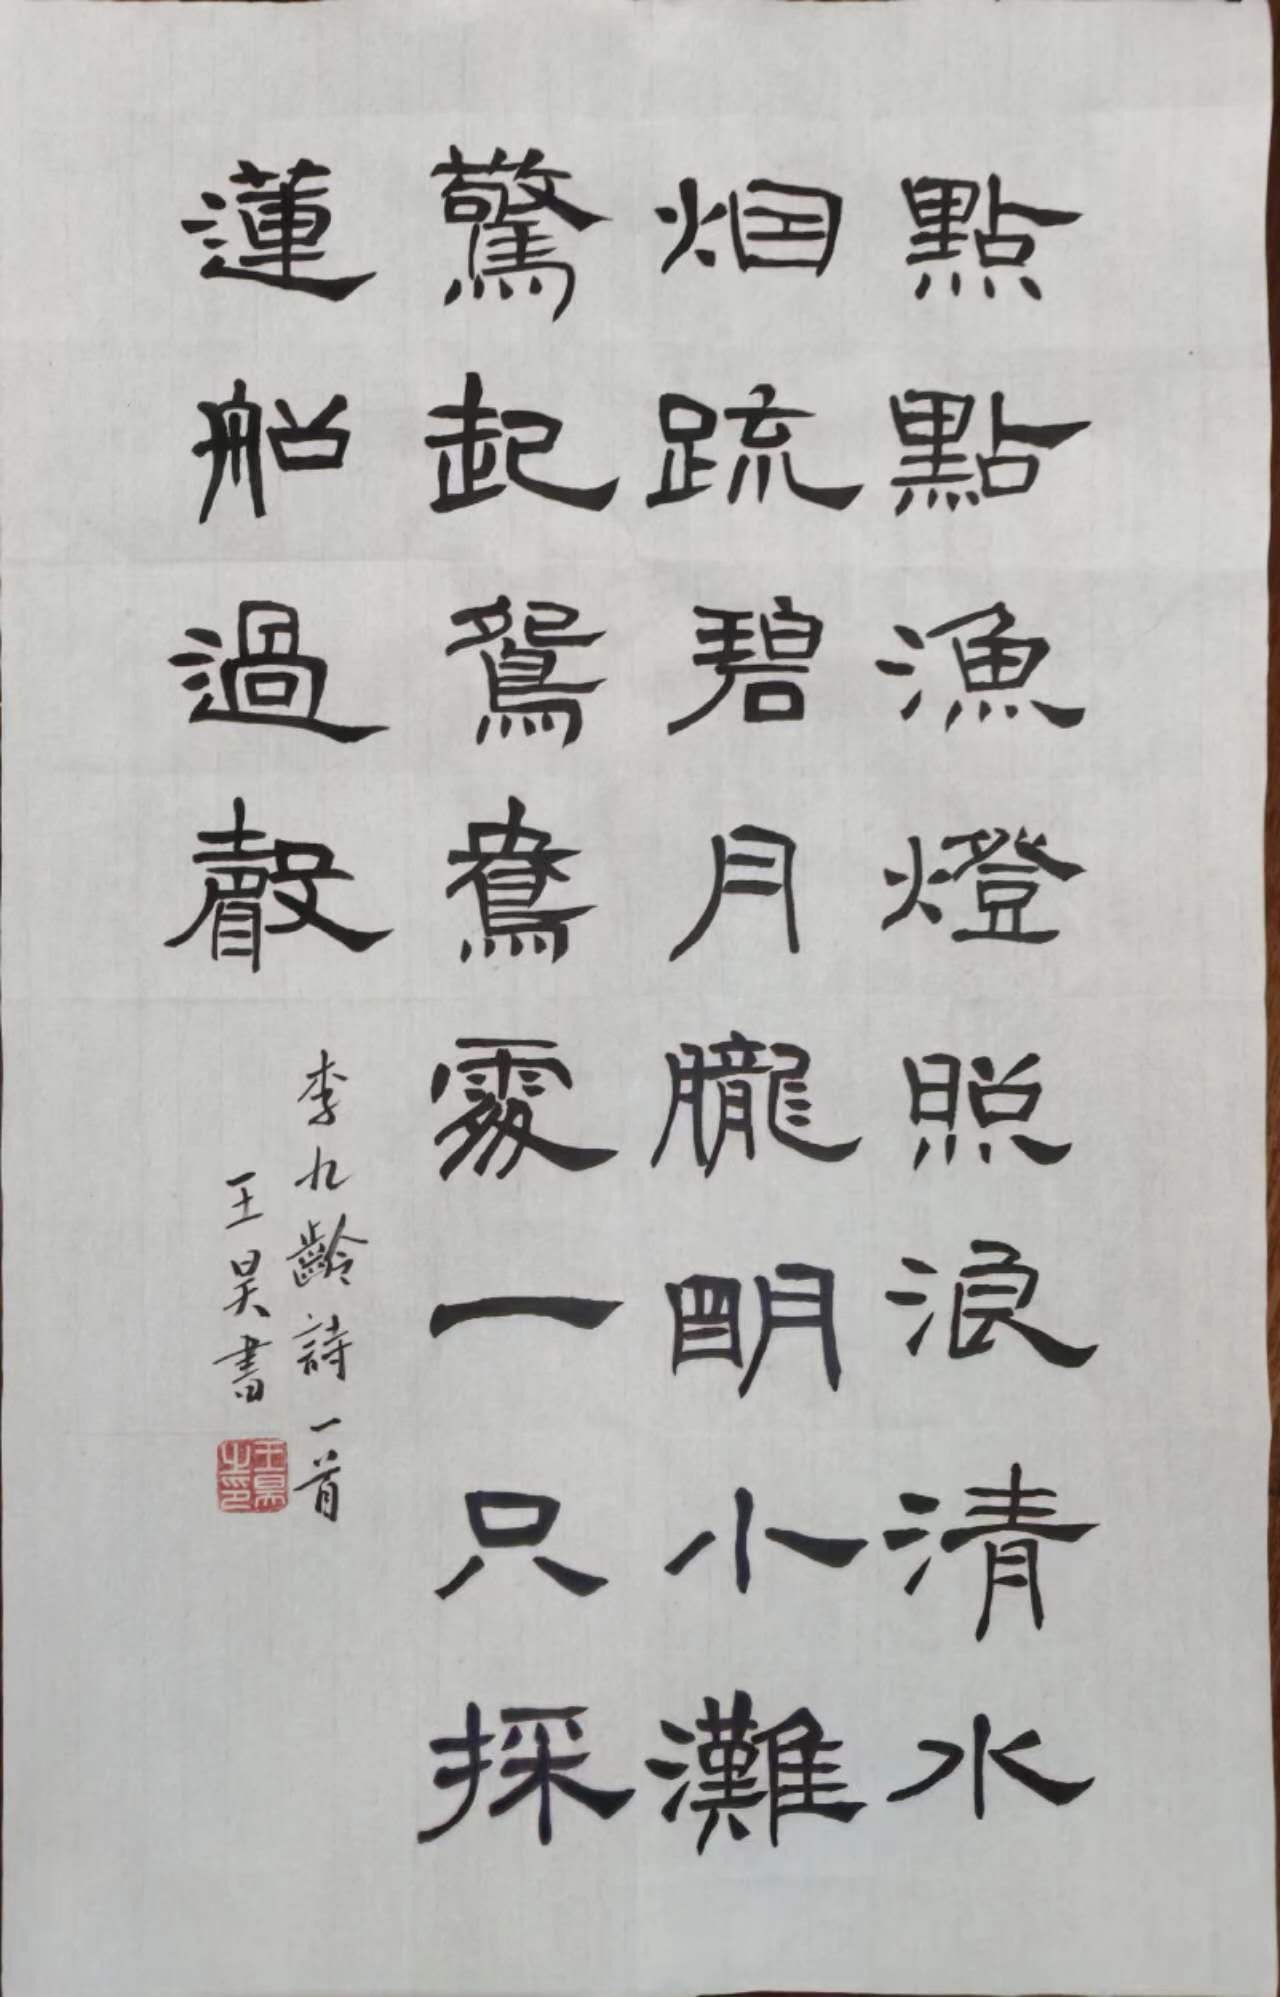 點點漁燈照浪清水
烟疏碧月朧朙小灘
驚起鴛鴦處一只採
蓮船過聲
李九齡詩一首
王昊書
王昊之印